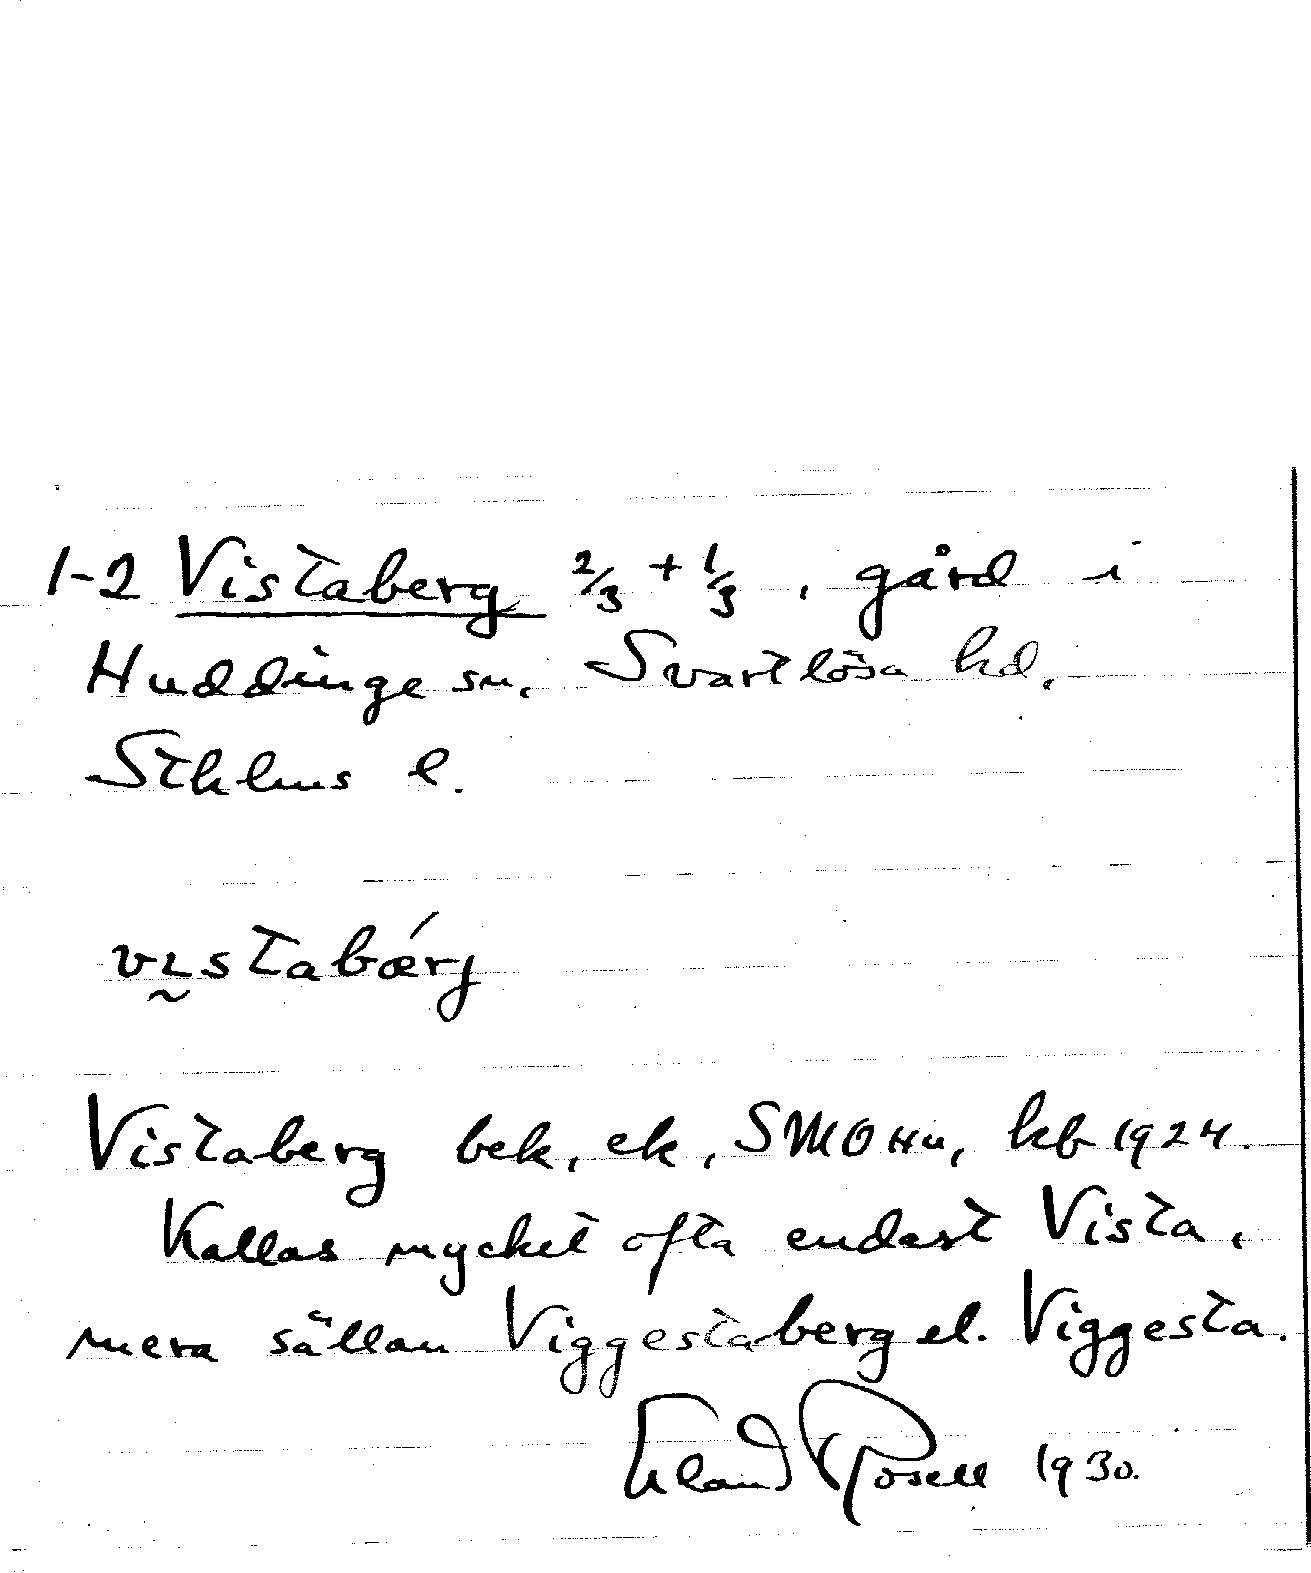 1-2 Vistaberg 2/3 + 1/3, gård i
Huddinge sn. Svartlösa hd.
Sthlms l.
vɩstabǽrj
Vistaberg bek, ek, SMOHu, kb 1924.
Kallas mycket ofta endast Vista,
mera sällan Viggestaberg el. Viggesta.
Erland Rosell 1930.